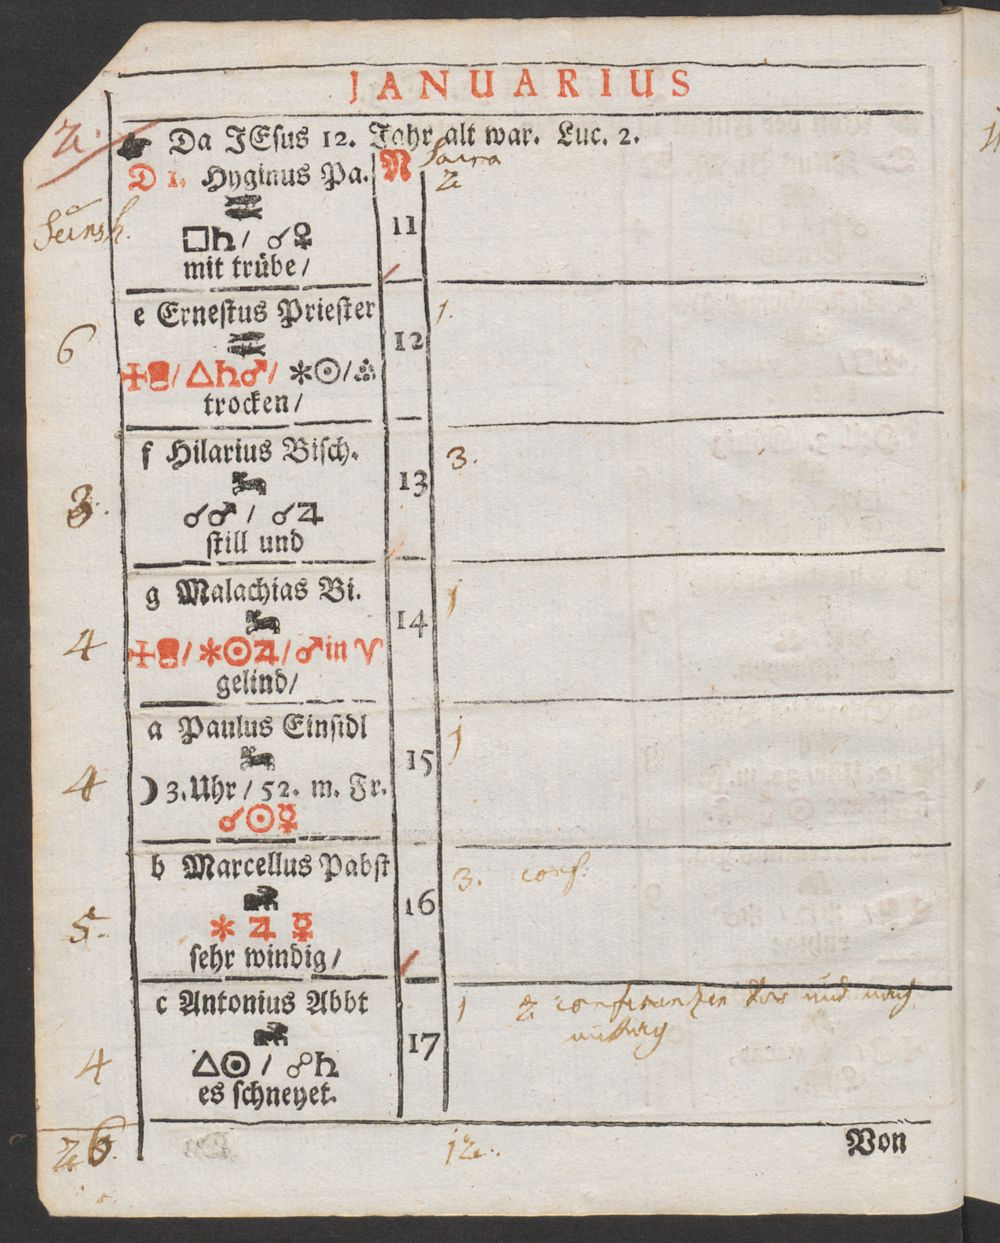 JANUARIUS
☛ Da JEsus 12. Jahr alt war. Luc. 2.
2.
D 1. Hyginus Pa. N
Sacra
2
□♄/ ☌♀ 11
mit trübe/
e Ernestus Priester 1.
6 12
✠ / △♄♂/ ✱☉/
trocken/
f Hilarius Bisch. 3.
3. 13
☌♂ / ☌♃
still und
g Malachias Bi. 1
4 14
✠ / ✱☉♃/ ♂ in ♈
gelind/
a Paulus Einsidl 1
4 15
☽ 3. Uhr / 52. m. Fr.
☌☉☿
b Marcellus Pabst 3. conf.
5. 16
✱ ♃ ☿
sehr windig/
c Antonius Abbt 1 2 und nach
4 17
△☉ / ☍♄
es schneyet.
26. 12.
Von